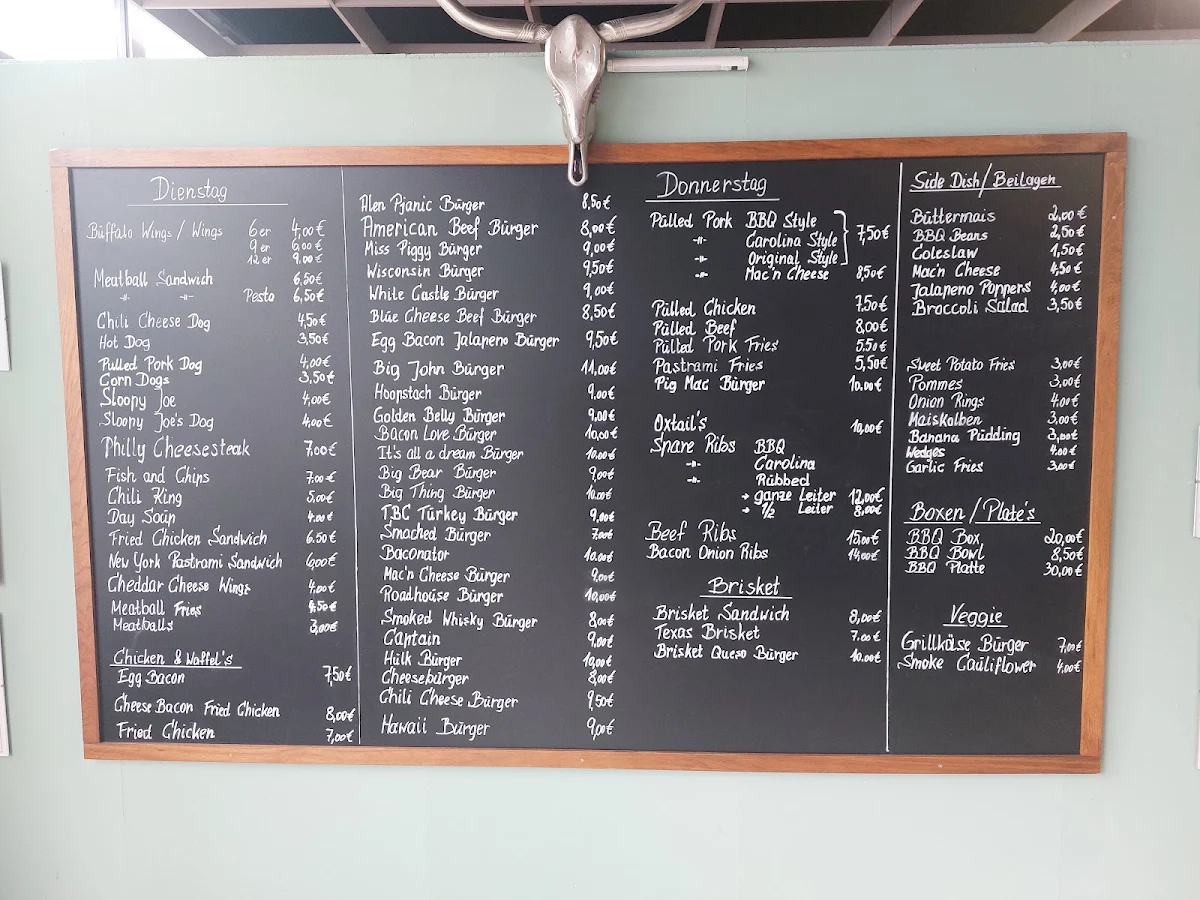 Dienstag
Büffalo Wings / Wings 6er 4,00€
9er 6,00€
12er 9,00€
Meatball Sandwich 6,50€
-"- -"- Pesto 6,50€
Chili Cheese Dog 4,50€
Hot Dog 3,50€
Pulled Pork Dog 4,00€
Corn Dogs 3,50€
Sloopy Joe 4,00€
Sloopy Joe's Dog 4,00€
Philly Cheesesteak 7,00€
Fish and Chips 7,00€
Chili King 5,00€
Day Soup 4,00€
Fried Chicken Sandwich 6.50€
New York Pastrami Sandwich 6,00€
Cheddar Cheese Wings 4,00€
Meatball Fries 4,50€
Meatballs 3,00€
Chicken & Waffel's
Egg Bacon 7,50€
Cheese Bacon Fried Chicken 8,00€
Fried Chicken 7,00€
Alen Pjanic Bürger 8,50€
American Beef Bürger 8,00€
Miss Piggy Bürger 9,00€
Wisconsin Bürger 9,50€
White Castle Bürger 9,00€
Blüe Cheese Beef Bürger 8,50€
Egg Bacon Jalapeno Bürger 9,50€
Big John Bürger 11,00€
Hoopstach Bürger 9,00€
Golden Belly Bürger 9,00€
Bacon Love Bürger 10,00€
It's all a dream Bürger 10,00€
Big Bear Bürger 9,00€
Big Thing Bürger 10,00€
TBC Türkey Bürger 9,00€
Smached Bürger 7,00€
Baconator 10.00€
Mac'n Cheese Bürger 9,00€
Roadhouse Bürger 10,00€
Smoked Whisky Bürger 8,00€
Captain 9,00€
Hülk Bürger 10,00€
Cheesebürger 8,00€
Chili Cheese Bürger 9,50€
Hawaii Bürger 9,00€
Donnerstag
Pülled Pork BBQ Style
-"- Carolina Style 7,50€
-"- Original Style
-"- Mac'n Cheese 8,50€
Pülled Chicken 7.50€
Pülled Beef 8,00€
Pülled Pork Fries 5.50€
Pastrami Fries 5,50€
Pig Mac Bürger 10.00€
Oxtail's 10,00€
Spare Ribs BBQ
-"- Carolina
-"- Rübbed
→ ganze Leiter 12,00€
→ 1/2 Leiter 8,00€
Beef Ribs 15.00€
Bacon Onion Ribs 14,00€
Brisket
Brisket Sandwich 8,00€
Texas Brisket 7.00€
Brisket Queso Bürger 10.00€
Side Dish/Beilagen
Büttermais 2,00€
BBQ Beans 2,50€
Coleslaw 1,50€
Mac'n Cheese 4,50€
Jalapeno Poppers 4,00€
Broccoli Salad 3,50€
Sweet Potato Fries 3,00€
Pommes 3,00€
Onion Rings 4,00€
Maiskolben 3,00€
Banana Püdding 3,00€
Wedges 4.00€
Garlic Fries 3,00€
Boxen / Plate's
BBQ Box 20,00€
BBQ Bowl 8,50€
BBQ Platte 30,00€
Veggie
Grillkäse Bürger 7,00€
Smoke Caüliflower 4,00€